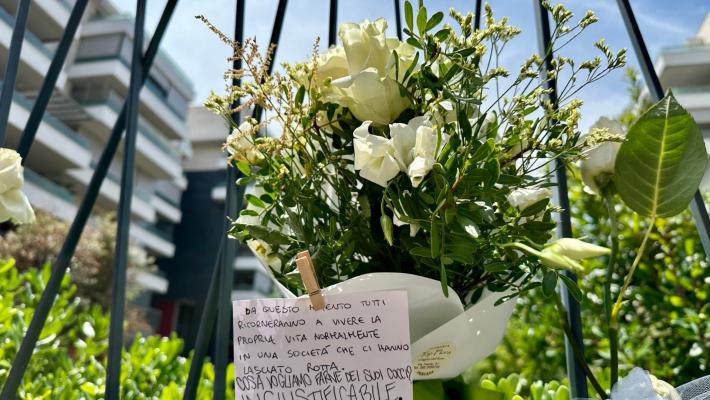 DA QUESTO MOMENTO TUTTI
RITORNERANNO A VIVERE LA
PROPRIA VITA NORMALMENTE
IN UNA SOCIETÀ CHE CI HANNO
LASCIATO ROTTA.
COSA VOGLIAMO FARNE DEI SUOI COCCI?
INGIUSTIFICABILE.